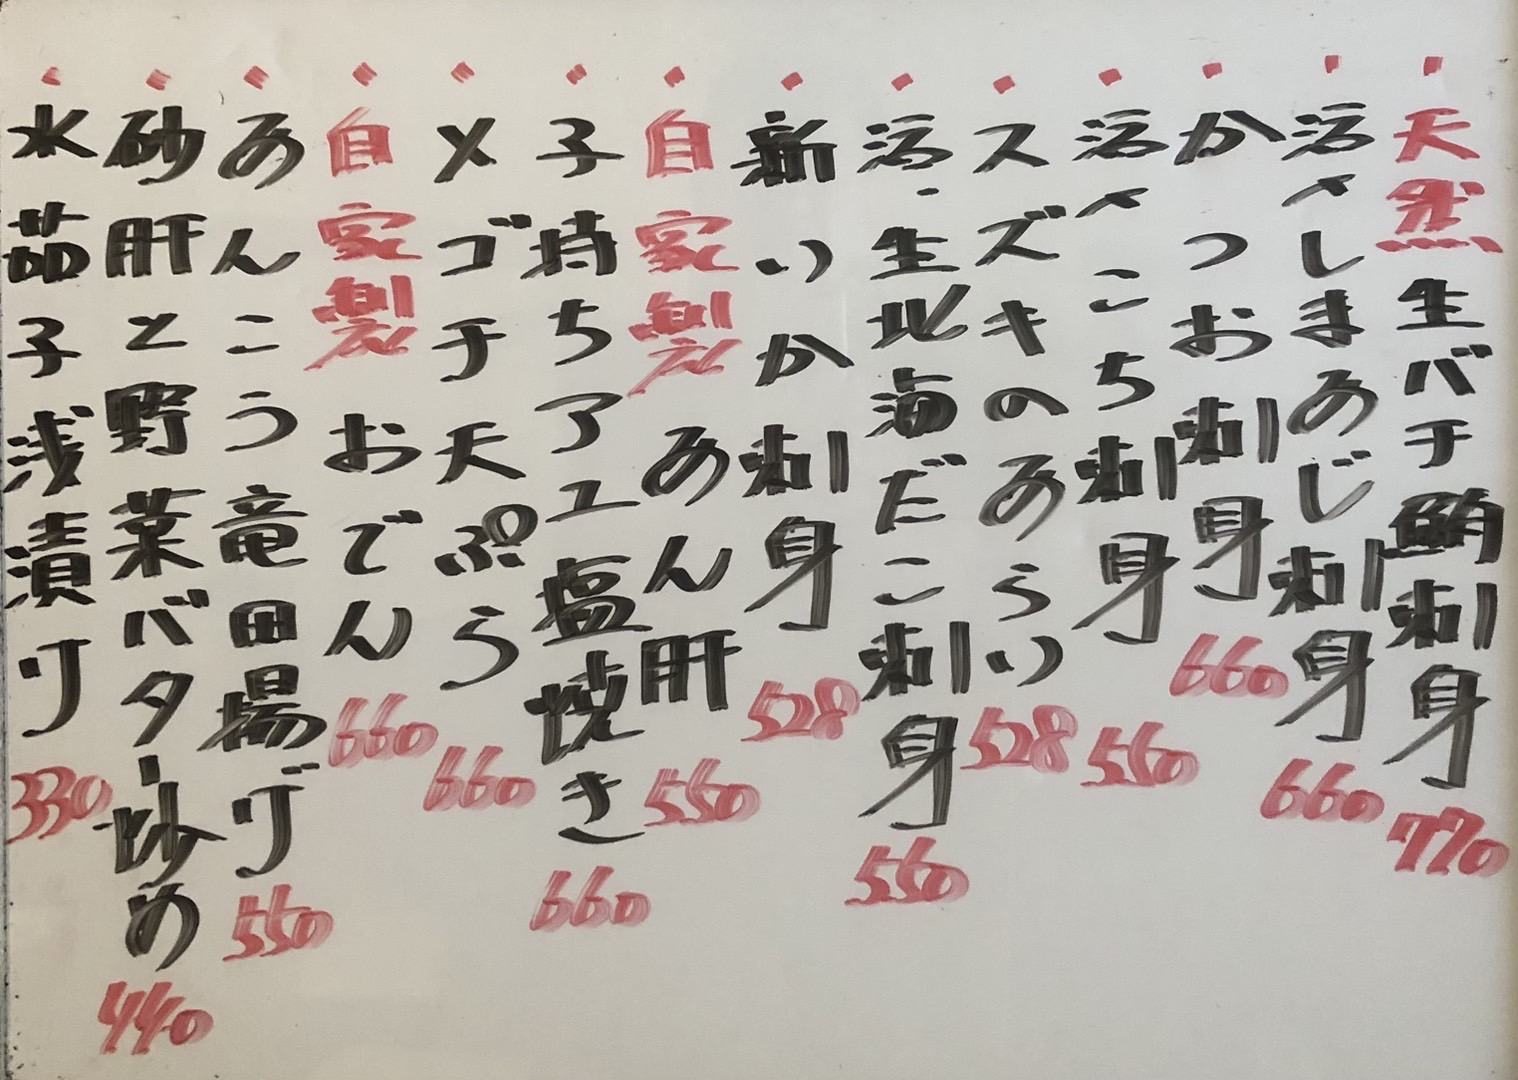 天然生バチ鮪刺身 770
活〆しまあじ刺身 660
かつお刺身 660
活〆こち刺身 550
スズキのあらい 528
活・生北海だこ刺身 550
新いか刺身 528
自家製 あん肝 550
子持ちアユ塩焼き 660
メゴチ天ぷら 660
自家製 おでん 660
あんこう竜田揚げ 550
砂肝と野菜バター炒め 440
水茄子浅漬け 330